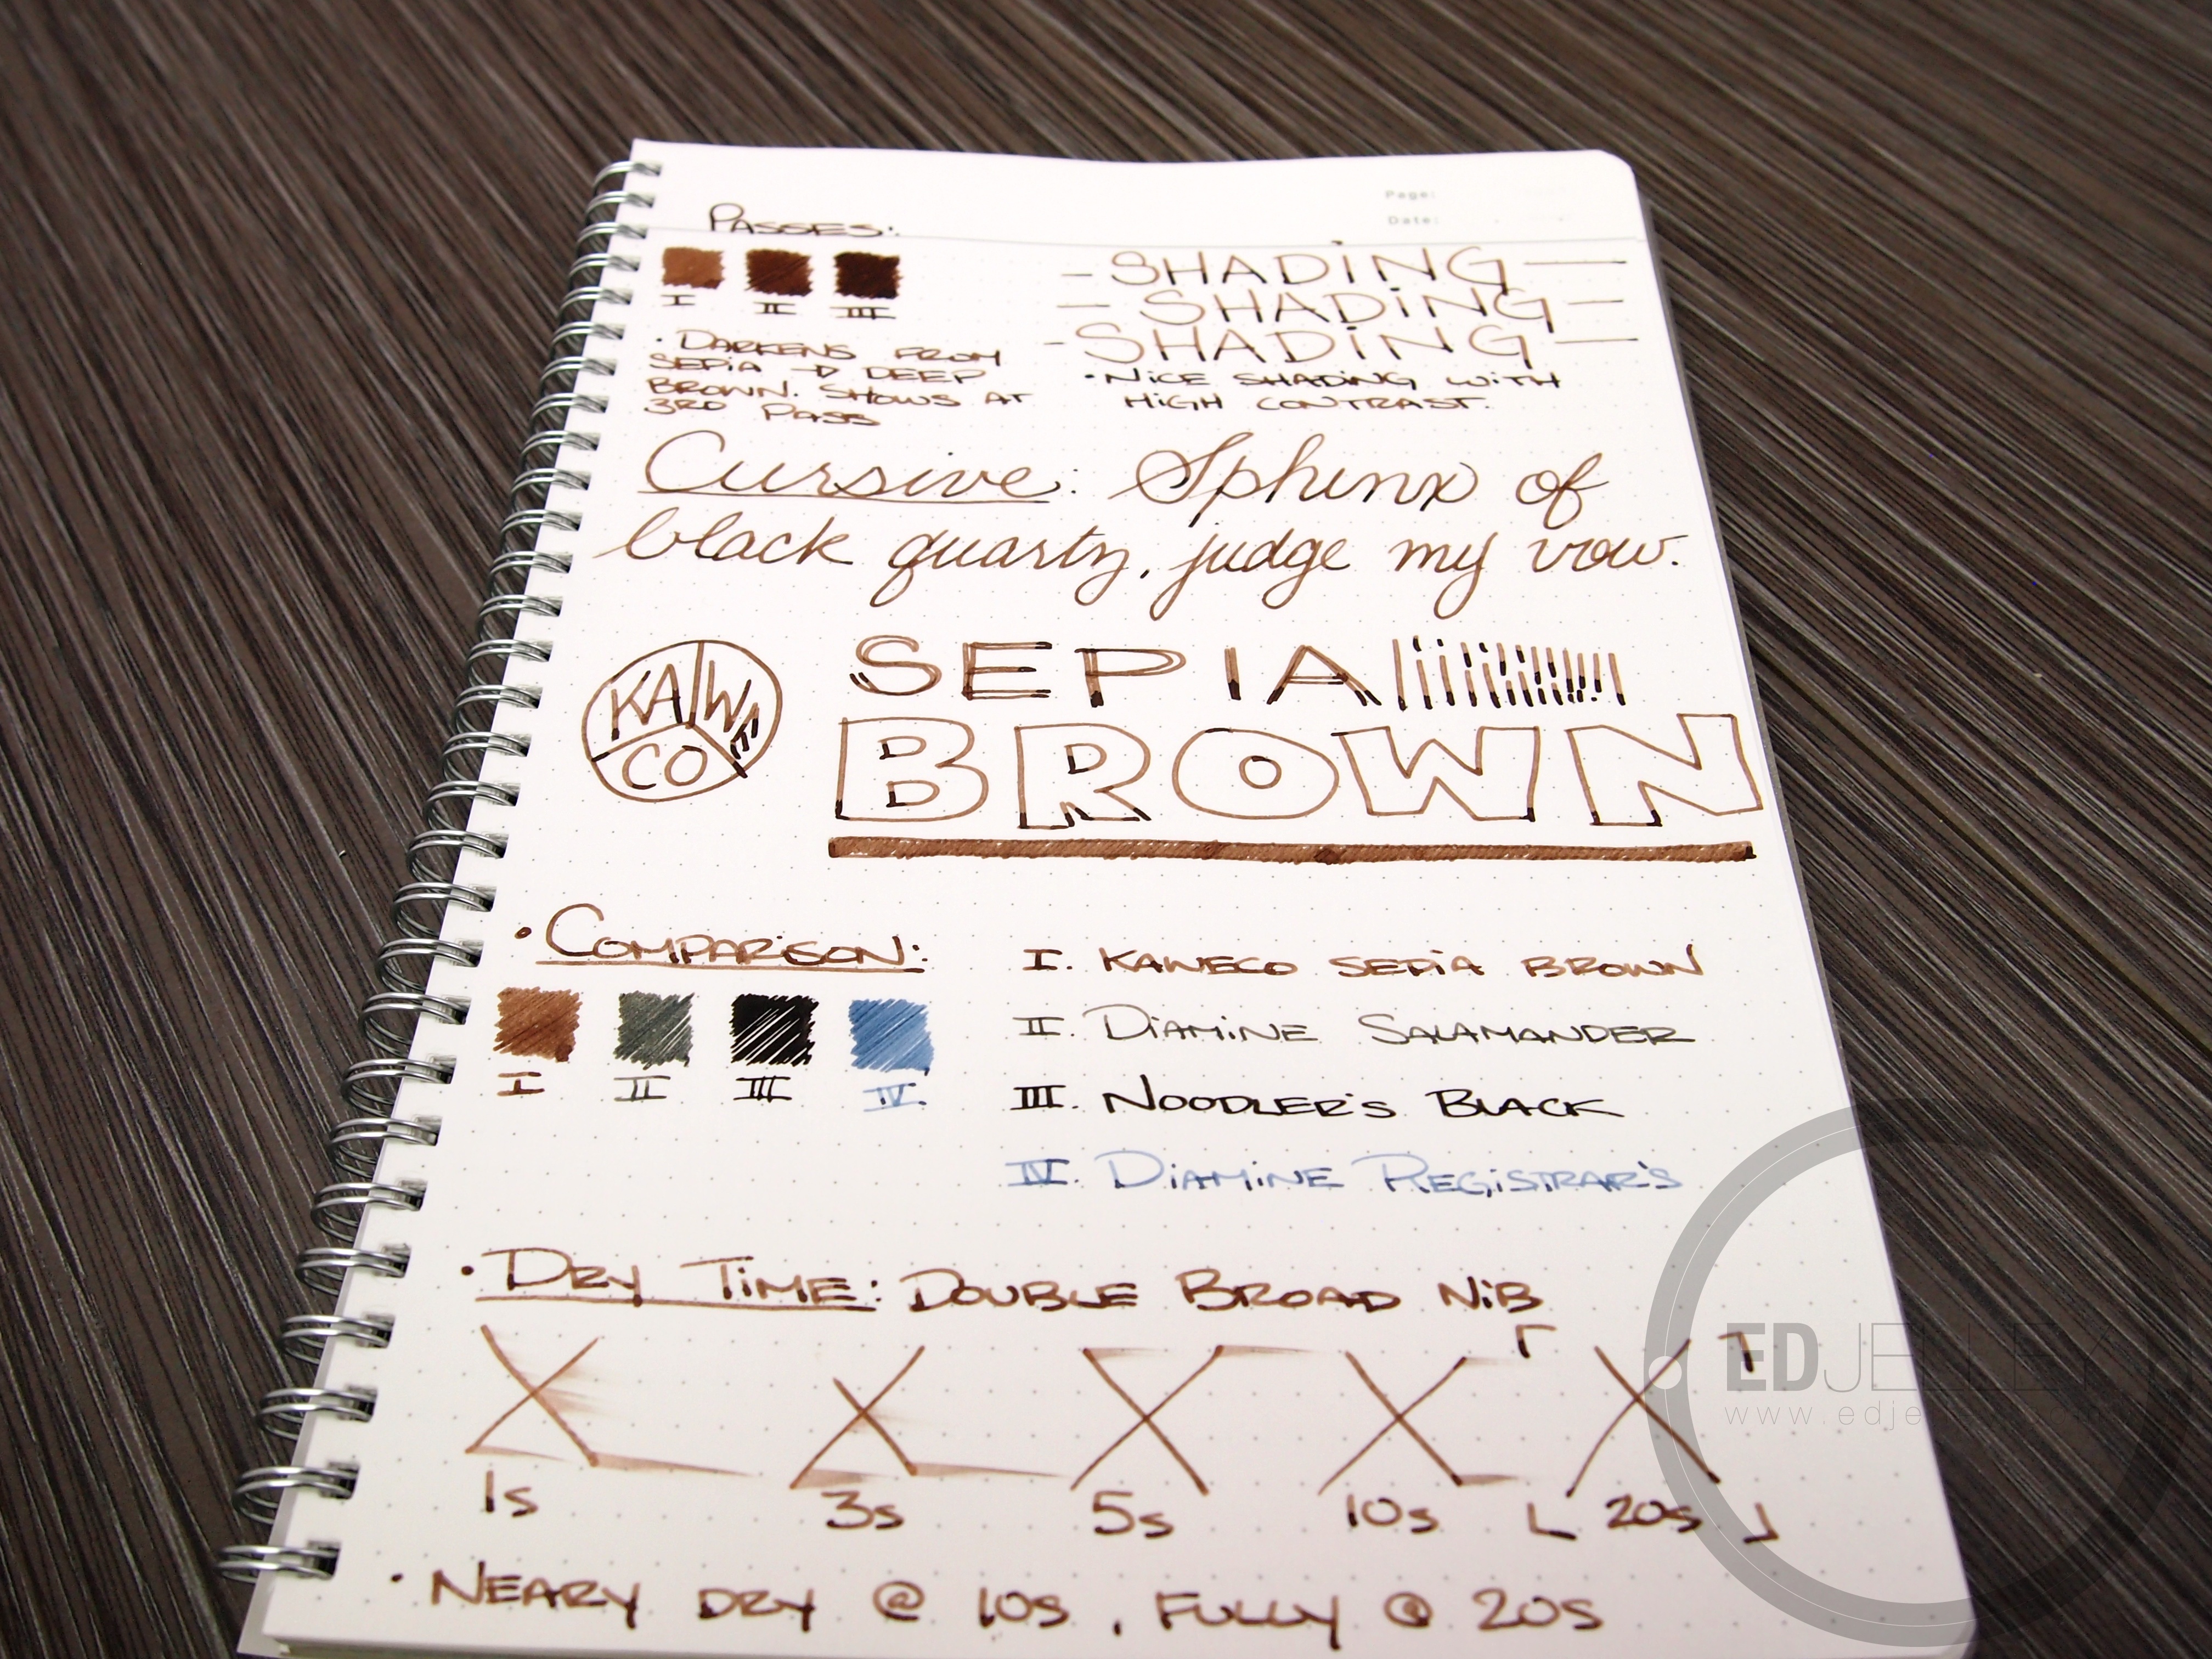 Page:
Date:
PASSES:
I II III
• DARKENS FROM
SEPIA → DEEP
BROWN. SHOWS AT
3RD PASS
- SHADING —
— SHADING —
- SHADING —
• NICE SHADING WITH
HIGH CONTRAST.
Cursive: Sphinx of
black quartz, judge my vow.
KAWE
CO
SEPIA
BROWN
• COMPARISON:
I II III IV.
I. KAWECO SEPIA BROWN
II. DIAMINE SALAMANDER
III. NOODLER'S BLACK
IV. DIAMINE REGISTRAR'S
• DRY TIME: DOUBLE BROAD NIB
X X X X X
1s 3s 5s 10s 20s
• NEARY DRY @ 10S, FULLY @ 20S
EDJELLEY